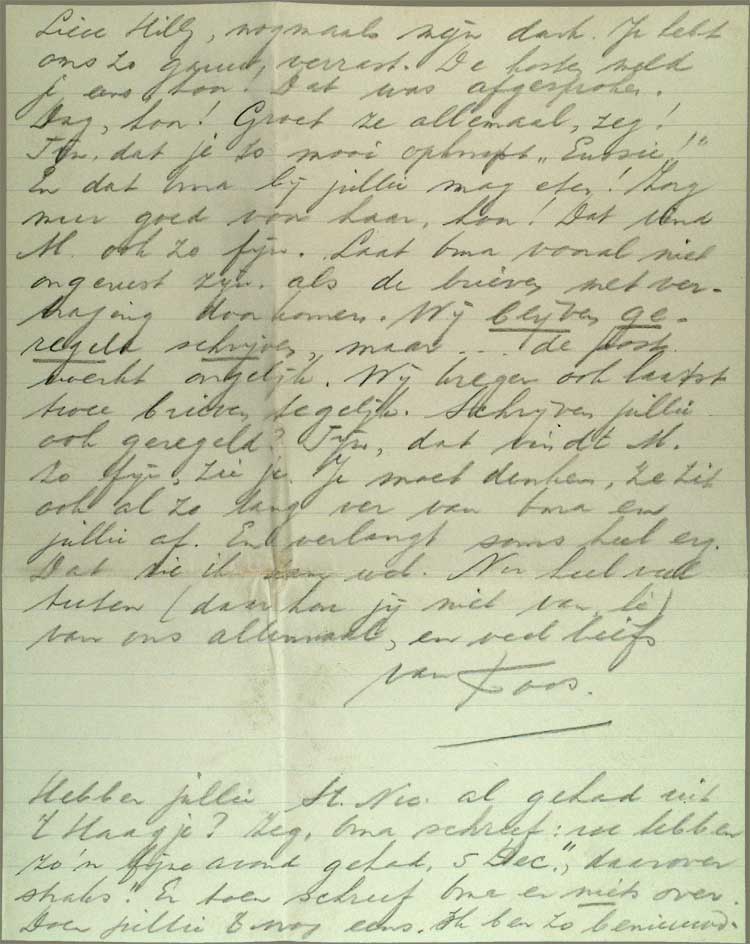 Lieve Hilly, nogmaals mijn dank. Je hebt
ons zo gauw, verrast. De kosten meld
je eens, hoor! Dat was afgesproken.
Dag, hoor! Groet ze allemaal, zeg!
Fijn, dat je zo mooi opknapt „Eussie!"
En dat Oma bij jullie mag eten! Zorg
maar goed voor haar, hoor! Dat vind
M. ook zo fijn. Laat Oma vooral niet
ongerust zijn. als de brieven met ver-
traging doorkomen. Wij blijven ge-
regeld schrijven, maar ... de post
werkt ongelijk. Wij kregen ook laatst
twee brieven tegelijk. Schrijven jullie
ook geregeld? Fijn, dat vindt M.
zo fijn, zie je. Je moet denken, ze zit
ook al zo lang ver van Oma en
jullie af. En verlangt soms heel erg.
Dat zie ik wel. Nu heel veel
tuten (daar hou jij niet van, hè)
van ons allemaal, en veel liefs
van Koos.
Hebben jullie St. Nic. al gehad uit
't Haagje? Zeg, Oma schreef: we hebben
zo'n fijne avond gehad, 5 Dec.", daarover
straks." En toen schreef Oma er niets over.
Doen jullie 't nog eens. Ik ben zo benieuwd.